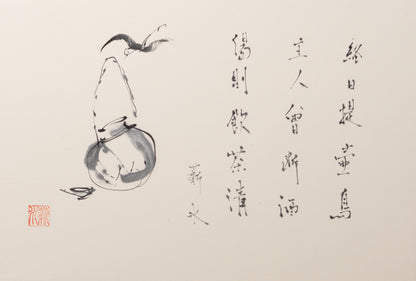 終日提壺鳥
主人曾断酒
渇則飲茶清